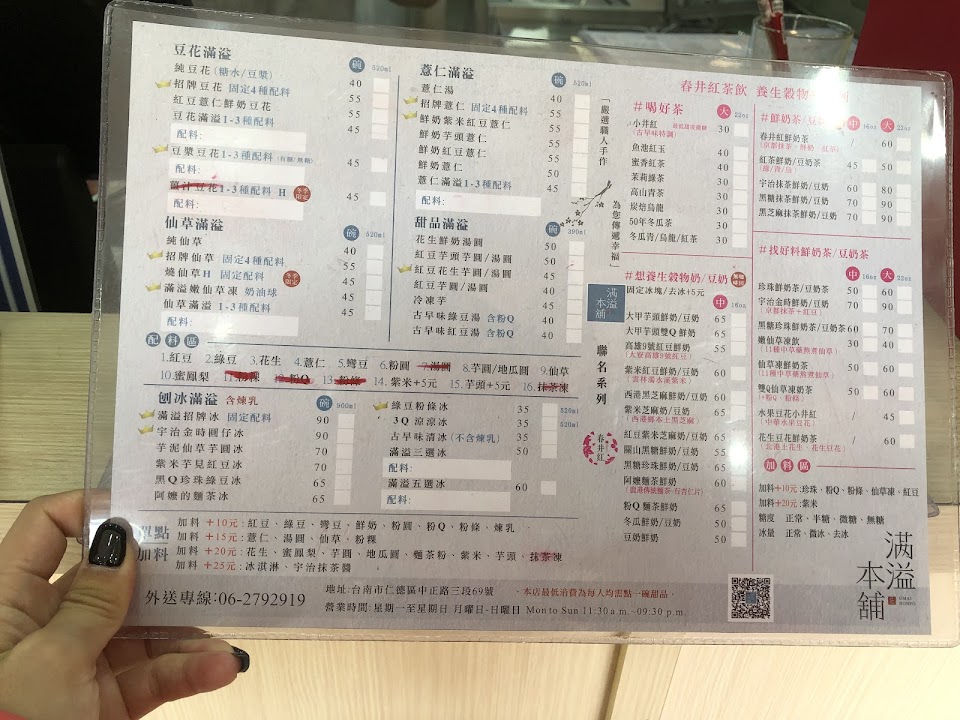 豆花滿溢 碗 520ml
純豆花(糖水/豆漿) 40
招牌豆花 固定4種配料 55
紅豆薏仁鮮奶豆花 55
豆花滿溢1-3種配料 45
配料:
豆漿豆花1-3種配料(有糖/無糖) 45
配料:
薑汁豆花1-3種配料 H 冬季限定 45
配料:
仙草滿溢 碗 520ml
純仙草 40
招牌仙草 固定4種配料 55
燒仙草H 固定配料 冬季限定 55
滿溢嫩仙草凍 奶油球 45
仙草滿溢 1-3種配料 45
配料:
薏仁滿溢 碗 520ml
薏仁湯 40
招牌薏仁 固定4種配料 55
鮮奶紫米紅豆薏仁 55
鮮奶芋頭薏仁 55
鮮奶紅豆薏仁 50
鮮奶薏仁 45
薏仁滿溢1-3種配料 45
配料:
甜品滿溢 碗 390ml
花生鮮奶湯圓 50
紅豆芋頭芋圓/湯圓 50
紅豆花生芋圓/湯圓 50
紅豆芋圓/湯圓 40
冷凍芋 40
古早味綠豆湯 含粉Q 40
古早味紅豆湯 含粉Q 40
配料區
1.紅豆 2.綠豆 3.花生 4.薏仁 5.彎豆 6.粉圓 7.湯圓 8.芋圓/地瓜圓 9.仙草
10.蜜鳳梨 11.粉粿 12.粉Q 13.粉條 14.紫米+5元 15.芋頭+5元 16.抹茶凍
刨冰滿溢 含煉乳 碗 900ml
滿溢招牌冰 固定配料 90
宇治金時圓仔冰 90
芋泥仙草芋圓冰 70
紫米芋見紅豆冰 70
黑Q珍珠綠豆冰 65
阿嬤的麵茶冰 65
綠豆粉條冰 35 520ml
3Q涼涼冰 35
古早味清冰(不含煉乳) 35 520ml
滿溢三選冰 50
配料:
滿溢五選冰 60
配料:
單點加料
加料+10元:紅豆、綠豆、彎豆、鮮奶、粉圓、粉Q、粉條、煉乳
加料+15元:薏仁、湯圓、仙草、粉粿
加料+20元:花生、蜜鳳梨、芋圓、地瓜圓、麵茶粉、紫米、芋頭、抹茶凍
加料+25元:冰淇淋、宇治抹茶醬
「嚴選職人手作
為您傳遞幸福」
滿溢本舖
聯名系列
春井紅
春井紅茶飲 養生穀物
#喝好茶 大 22oz
小井紅 30
(古早味特調)
魚池紅玉 40
蜜香紅茶 30
茉莉綠茶 30
高山青茶 30
炭焙烏龍 30
50年冬瓜茶 30
冬瓜青/烏龍/紅茶 30
#想養生穀物奶/豆奶
固定冰塊/去冰+5元 中 16oz
大甲芋頭鮮奶/豆奶 65
大甲芋頭雙Q鮮奶 65
高雄9號紅豆鮮奶 55
(大寮高雄9號紅豆)
紫米紅豆鮮奶/豆奶 60
(雲林濁水溪紫米)
西港黑芝麻鮮奶/豆奶 60
紫米芝麻奶/豆奶 65
(西港鄉本土黑芝麻)
紅豆紫米芝麻奶/豆奶 65
關山黑糖鮮奶/豆奶 55
黑糖珍珠鮮奶/豆奶 65
阿嬤麵茶鮮奶 60
粉Q麵茶鮮奶 65
冬瓜鮮奶/豆奶 50
豆奶鮮奶 50
#鮮奶茶/豆 中 16oz 大 22oz
春井紅鮮奶茶 / 60
紅茶鮮奶/豆奶茶 45 50
(綠/青/烏)
宇治抹茶鮮奶/豆奶 60 80
黑糖抹茶鮮奶/豆奶 70 90
黑芝麻抹茶鮮奶/豆奶 70 90
#找好料鮮奶茶/豆奶茶
中 16oz 大 22oz
珍珠鮮奶茶/豆奶茶 50 60
宇治金時鮮奶/豆奶 70 90
(京都抹茶+紅豆)
黑糖珍珠鮮奶茶/豆奶茶 60 70
嫩仙草凍飲 30 40
(11種中草藥熬煮仙草)
仙草凍鮮奶茶 50 60
(11種中草藥熬煮仙草)
雙Q仙草凍奶茶 50 65
(+粉Q、粉條)
水果豆花小井紅 / 45
(中華水果豆花)
花生豆花鮮奶茶 / 60
(北港上花生、花生豆花)
加料區
加料+10元:珍珠、粉Q、粉條、仙草凍、紅豆
加料+20元:紫米
糖度 正常、半糖、微糖、無糖
冰量 正常、微冰、去冰
外送專線:06-2792919
地址:台南市仁德區中正路三段69號
·本店最低消費為每人均需點一碗甜品·
營業時間:星期一至星期日 月曜日-日曜日 Mon to Sun 11:30 a.m.~09:30 p.m.
滿溢本舖
OMAI HONPO